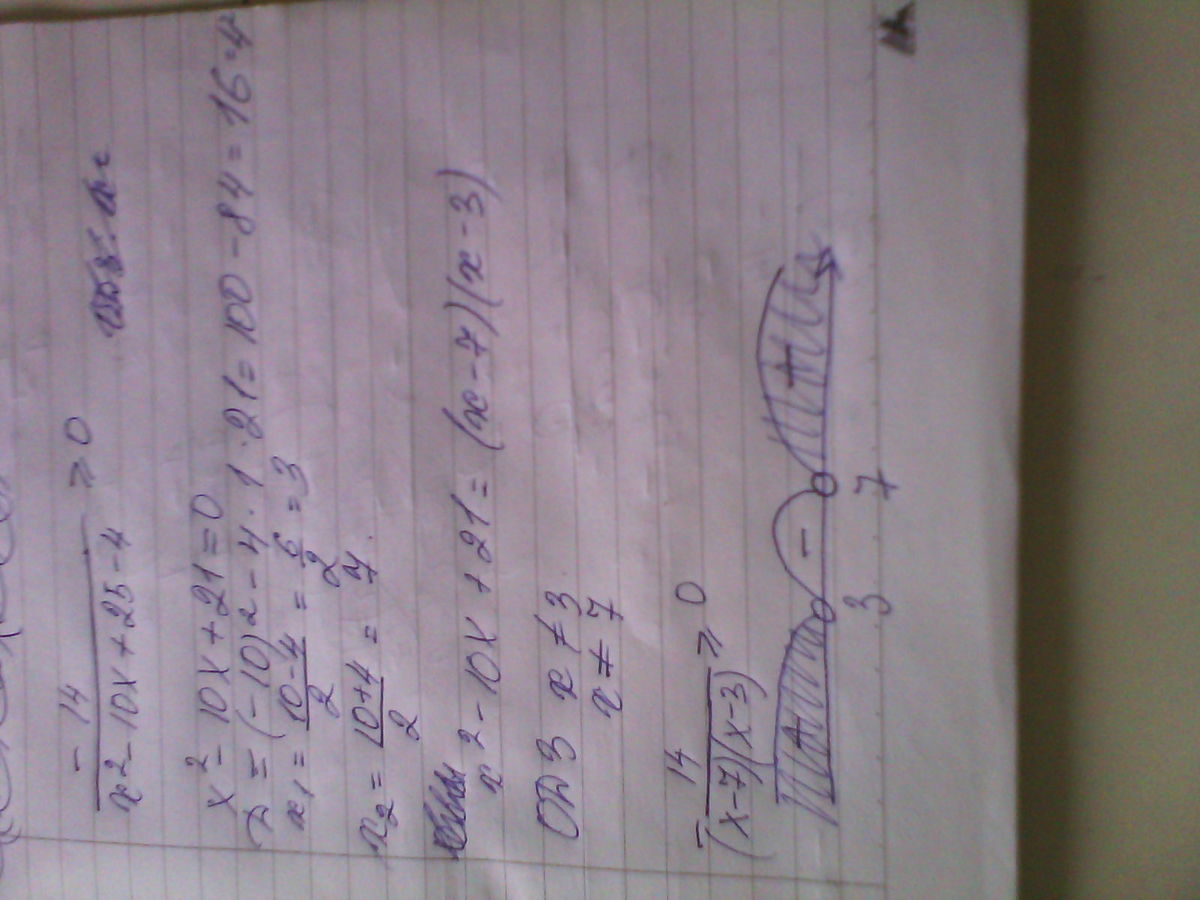 - 14 / x2 - 10x + 25 - 4 ⩾ 0
x² - 10x + 21 = 0
D = (-10)2 - 4 · 1 · 21 = 100 - 84 = 16 = 4
x₁ = 10 - 4 / 2 = 6 / 2 = 3
x₂ = 10 + 4 / 2 = 7.
x2 - 10x + 21 = (x - 7)(x - 3)
ОДЗ x ≠ 3
x ≠ 7
- 14 / (x - 7)(x - 3) ⩾ 0
+ - +
3 7